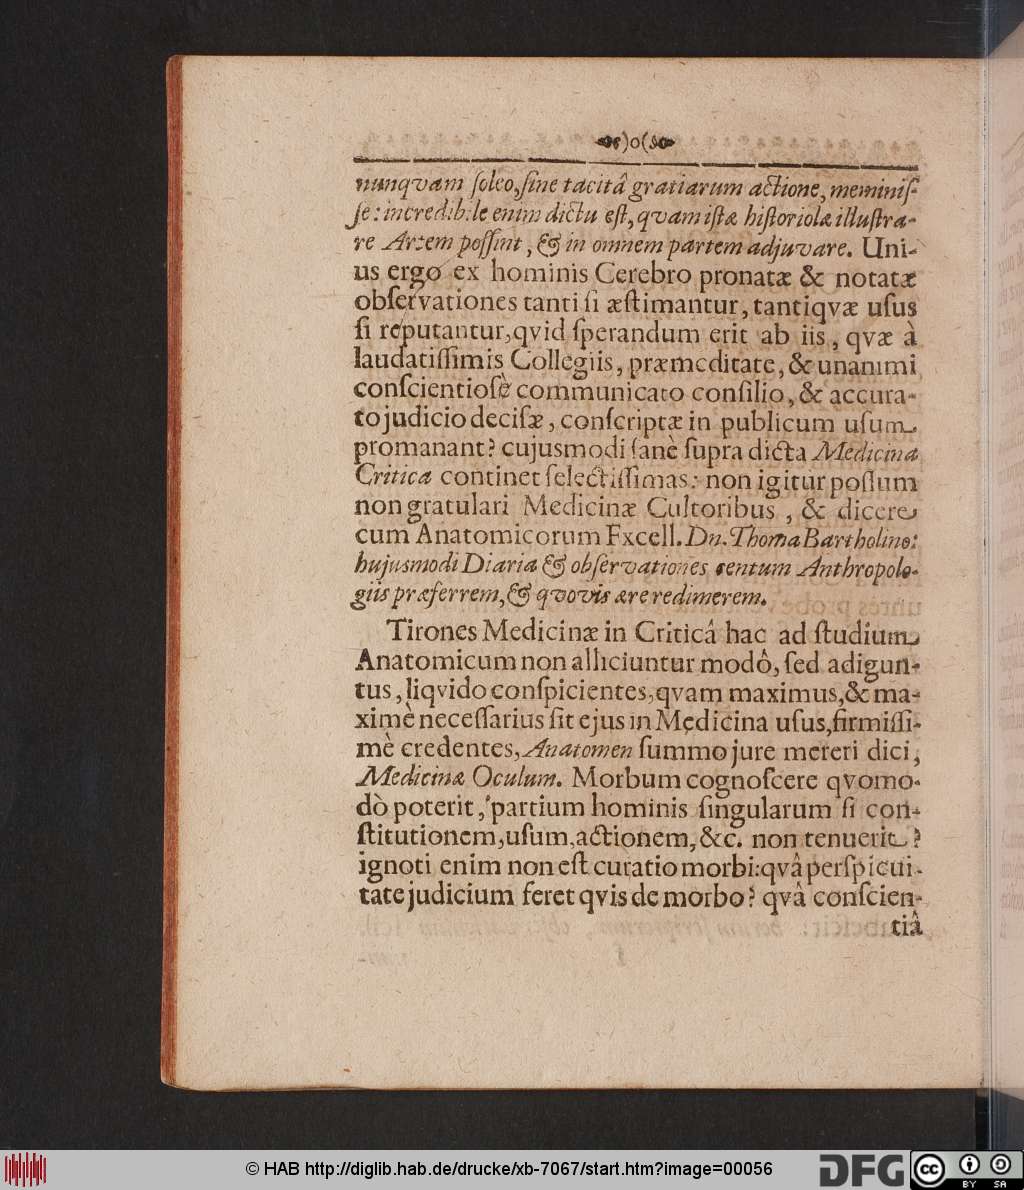 )o(
nunqvam ſoleo, ſine tacitâ gratiarum actione, meminiſ-
ſe: incredibile enim dictu eſt, qvam iſtæ hiſtoriolæ illuſtra-
re Artem poſſint, & in omnem partem adjuvare. Uni-
us ergo ex hominis Cerebro pronatæ & notatæ
obſervationes tanti ſi æſtimantur, tantiqvæ uſus
ſi reputantur, qvid ſperandum erit ab iis, qvæ à
laudatiſſimis Collegiis, præmeditate, & unanimi
conſcientioſè communicato conſilio, & accura-
to judicio deciſæ, conſcriptæ in publicum uſum
promanant? cujusmodi ſanè ſupra dicta Medicina
Critica continet ſelectiſſimas: non igitur poſſum
non gratulari Medicinæ Cultoribus, & dicere
cum Anatomicorum Excell. Dn. Thoma Bartholino:
hujusmodi Diaria & obſervationes centum Anthropolo-
giis præferrem, & qvovis ære redimerem.
Tirones Medicinæ in Criticâ hac ad ſtudium
Anatomicum non alliciuntur modô, ſed adigun-
tus, liqvido conſpicientes, qvam maximus, & ma-
ximè neceſſarius ſit ejus in Medicina uſus, firmiſſi-
mè credentes, Anatomen ſummo jure mereri dici,
Medicinæ Oculum. Morbum cognoſcere qvomo-
dò poterit, partium hominis ſingularum ſi con-
ſtitutionem, uſum, actionem, &c. non tenuerit?
ignoti enim non eſt curatio morbi: qvâ perſpicui-
tate judicium feret qvis de morbo? qvâ conſcien-
tiâ
© HAB http://diglib.hab.de/drucke/xb-7067/start.htm?image=00056
DFG
cc
BY SA